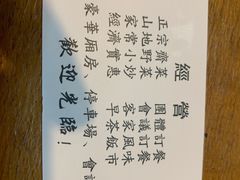 經營
正宗齋菜 團體訂餐
山地野菜 會議訂餐
家常小炒 客家風味
經濟實惠 早茶飯市
豪華廂房、停車場、會
歡迎光臨！